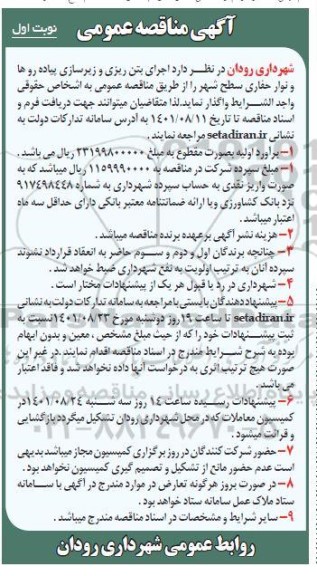 آگهی مناقصه عمومی
نوبت اول
شهرداری رودان در نظر دارد اجرای بتن ریزی و زیرسازی پیاده رو ها
و نوار حفاری سطح شهر را از طریق مناقصه عمومی به اشخاص حقوقی
واجد الشرایط واگذار نماید.لذا متقاضیان میتوانند جهت دریافت فرم و
اسناد مناقصه تا تاریخ ۱۴۰۱/۰۸/۱۱ به آدرس سامانه تدارکات دولت به
نشانی setadiran.ir مراجعه نمایند .
۱- برآورد اولیه بصورت مقطوع به مبلغ ۲۳۱۹۹۸۰۰۰۰۰ ریال می باشد .
۱- مبلغ سپرده شرکت در مناقصه به ۱۱۵۹۹۹۰۰۰۰ ریال میباشد که به
صورت واریز نقدی به حساب سپرده شهرداری به شماره ۹۱۷۴۹۸۴۴۸
نزد بانک کشاورزی ویا ارائه ضمانتنامه معتبر بانکی دارای حداقل سه ماه
اعتبار میباشد .
۲- هزینه نشر آگهی بر عهده برنده مناقصه میباشد .
۳- چنانچه برندگان اول و دوم و سوم حاضر به انعقاد قرارداد نشوند
سپرده آنان به ترتیب اولویت به نفع شهرداری ضبط خواهد شد .
۴- شهرداری در رد یا قبول هر یک از پیشنهادات مختار است .
۵- پیشنهاد دهندگان بایستی با مراجعه به سامانه تدارکات دولت به نشانی
setadiran.ir تا ساعت ۱۹ روز دوشنبه مورخ ۱۴۰۱/۰۸/۲۳ نسبت به
ثبت پیشنهادات خود را که از حیث مبلغ مشخص ، معین و بدون ابهام
بوده به شرح شرایط مندرج در اسناد مناقصه اقدام نمایند .در غیر این
صورت هیچ ترتیب اثری به درخواست آنها داده نخواهد شد و فاقد اعتبار
می باشد .
۶- پیشنهادات رسیده ساعت ۱۴ روز سه شنبه ۱۴۰۱/۰۸/۲۴ در
کمیسیون معاملات که در محل شهرداری رودان تشکیل میگردد بازگشایی
و قرائت میشود .
۷- حضور شرکت کنندگان در روز برگزاری کمیسیون مجاز میباشد بدیهی
است عدم حضور مانع از تشکیل و تصمیم گیری کمیسیون نخواهد بود .
۸- در صورت بروز هرگونه تعارض در موارد مندرج در آگهی با سامانه
ستاد ملاک عمل سامانه ستاد خواهد بود .
۹- سایر شرایط و مشخصات در اسناد مناقصه مندرج میباشد .
روابط عمومی شهرداری رودان